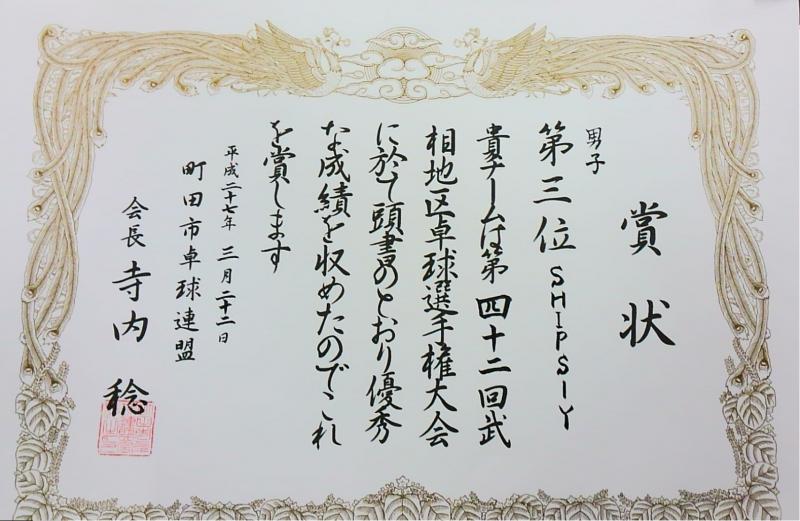 賞状
男子
第三位 SHIPSIY
貴チームは第四十二回武
相地区卓球選手権大会
に於て頭書のとおり優秀
な成績を収めたのでこれ
を賞します
平成二十七年 三月二十二日
町田市卓球連盟
会長 寺内 稔